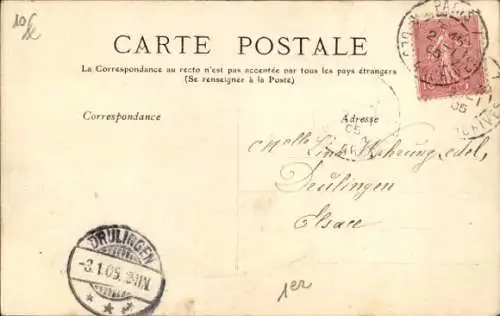 10
CARTE POSTALE
La Correspondance au recto n'est pas acceptée par tous les pays étrangers
(Se renseigner à la Poste)
Correspondance
Adresse
PARIS
05
05
Melle Lina
Drulingen
Elsace
DRULINGEN
-3.1.05.
1er